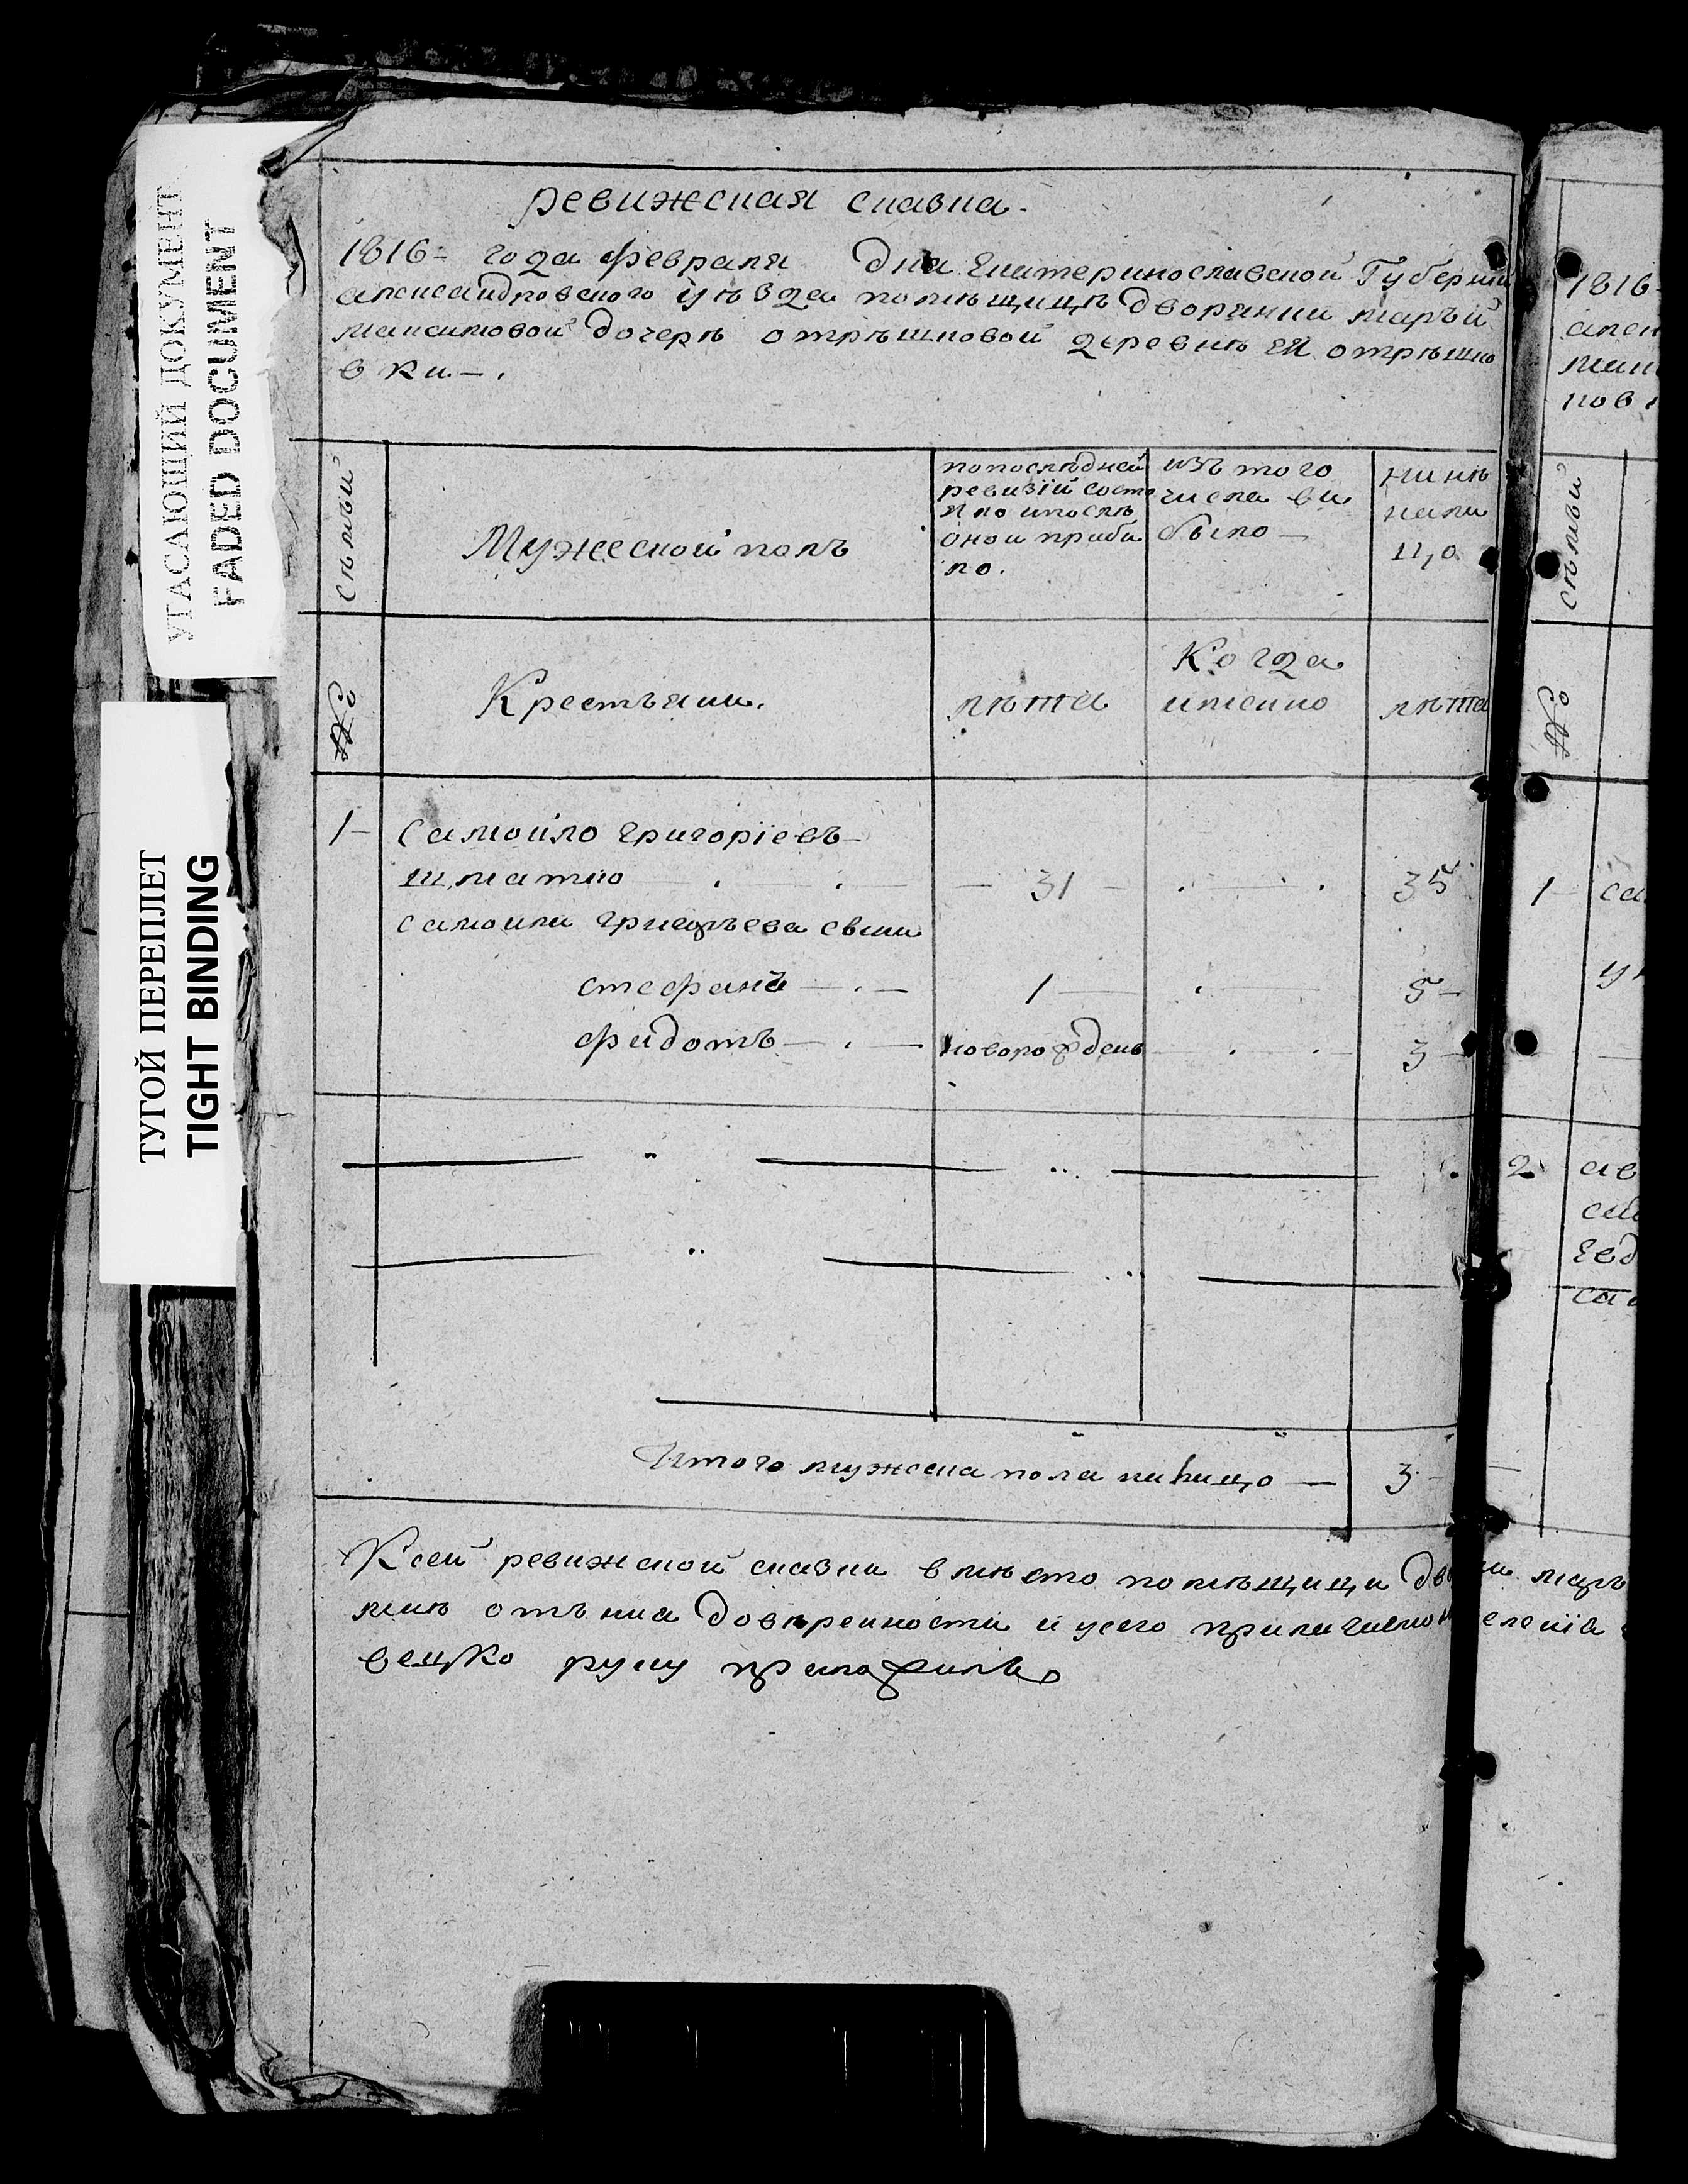 УГАСАЮЩИЙ ДОКУМЕНТ
FADED DOCUMENT
ТУГОЙ ПЕРЕПЛЕТ
TIGHT BINDING
ревижская скавка.
1816= года февраля дня Екатеринославской Губернии
александровского уѣзда помѣщицѣ дворянки маръй
максимовой дочерѣ отрѣшковой деревнѣ ея отрѣшко
вки.-.
сѣмьй
Мужеской полъ
попослѣдней
ревизій состо
яло ипослѣ
оной приби
ло.
изъ того
числа ви
было-
нинѣ
нали
цо
№
Крестъяни.
лѣта
Когда
имено
лѣта
1- самойло григоріевъ-
шматко 31 35
самойла григоръева сыни
стефанъ 1 5-
фидотъ новорожденъ 3-
Итого мужеска пола нинѣ лицо - 3-
Ксей ревижской скавки вмѣсто помѣщици
мнѣ отъ ниа довѣреиности и усего
руку приложилъ
1816-
1 са
2 ав
сѣмьй
№